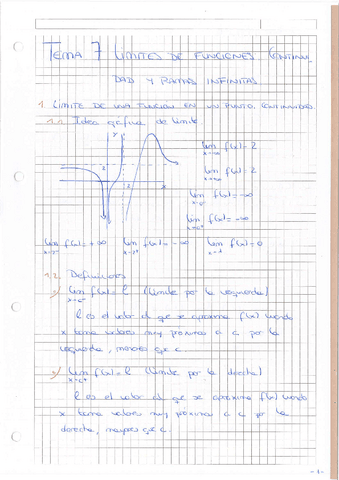 TEMA 7 LÍMITES DE FUNCIONES. CONTINUI-
DAD Y RAMAS INFINITAS
1. LÍMITE DE UNA FUNCIÓN EN UN PUNTO. CONTINUIDAD.
1.1. Idea gráfica de límite
y
lim f(x) = 2
x→-∞
2
2
x
lim f(x) = 2
x→+∞
lim f(x) = -∞
lim f(x) = -∞
lim f(x) = +∞ lim f(x) = -∞ lim f(x) = 0
1.2. Definiciones
lim f(x) = l (Límite por la izquierda)
x→c⁻
l es el valor al que se aproxima f(x) cuando
x toma valores muy próximos a c por la
izquierda, menores que c.
lim f(x) = l (Límite por la derecha)
x→c⁺
l es el valor al que se aproxima f(x) cuando
x toma valores muy próximos a c por la
derecha, mayores que c.
-1-